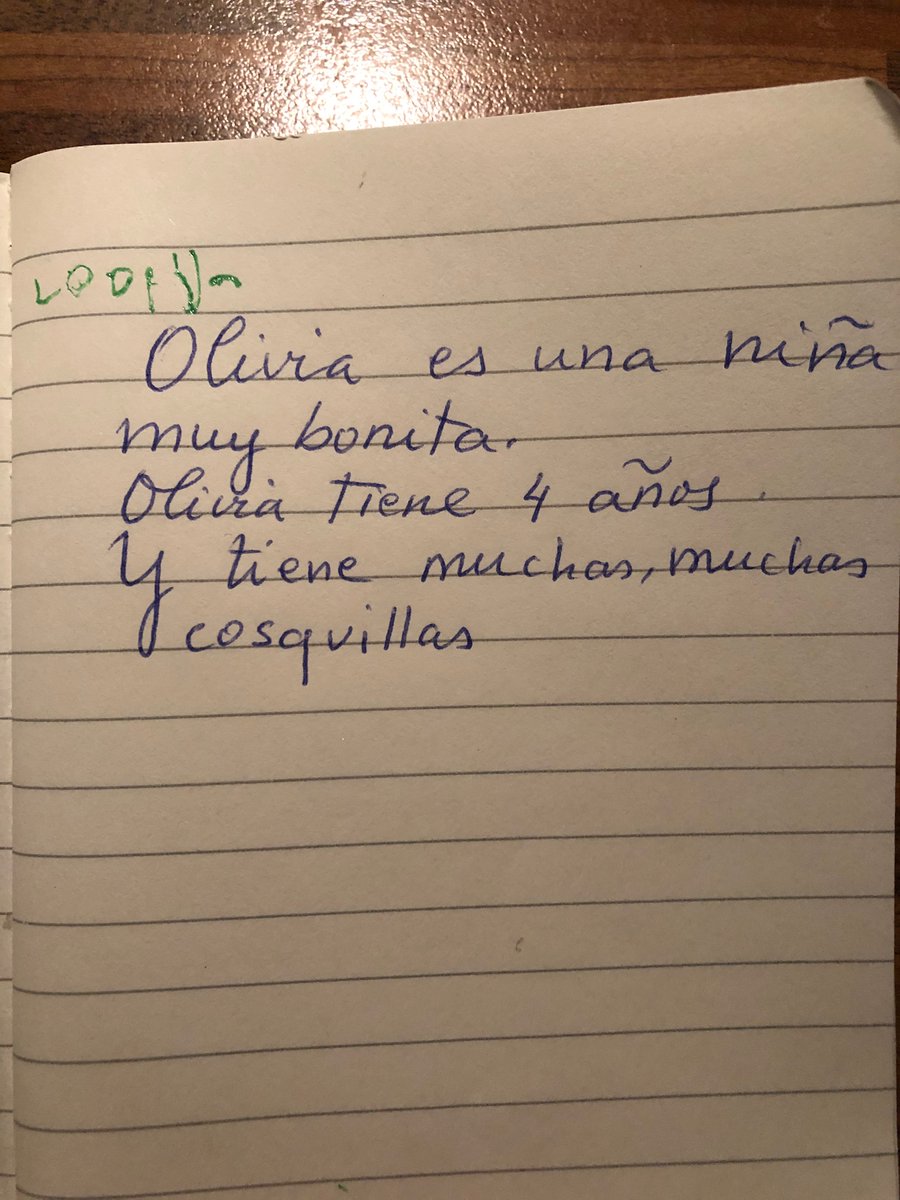 Olivia es una niña
muy bonita.
Olivia tiene 4 años.
Y tiene muchas, muchas
cosquillas